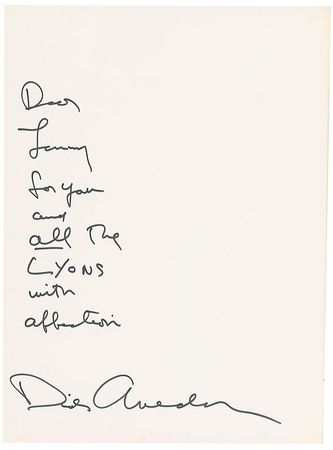 Dear
for you
and
all The
LYONS
with
affection
Dick Avedon